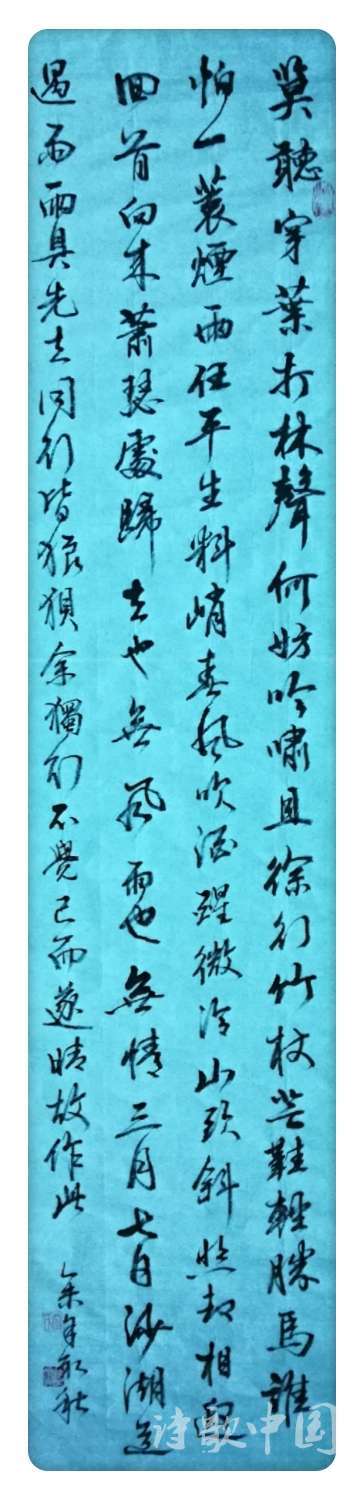 莫聽穿葉打林聲何妨吟嘯且徐行竹杖芒鞋輕勝馬誰
怕一蓑煙雨任平生料峭春風吹酒醒微冷山頭斜照却相迎
回首向來蕭瑟處歸去也無風雨也無情三月七日沙湖道
遇雨雨具先去同行皆狼狽余獨行不覺已而遂晴故作此
诗歌中国